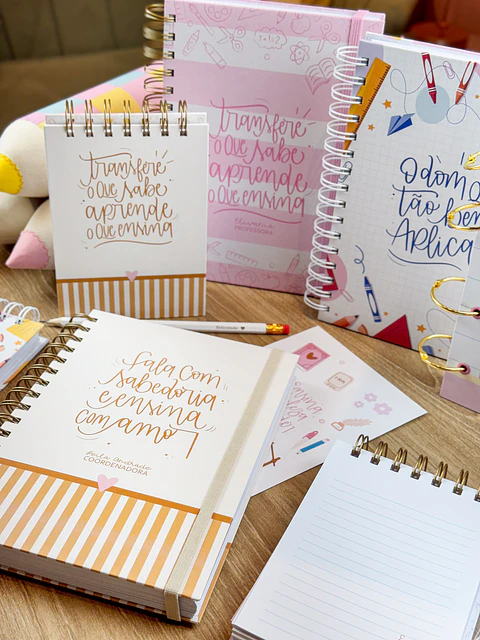 transfere
o que sabe
aprende
o que ensina
PROFESSORA
transfere
o que sabe
aprende
o que ensina
O dom
tão bem
Aplica
Fala com
sabedoria
e ensina
com amor
Paula Andrade
COORDENADORA
ensina